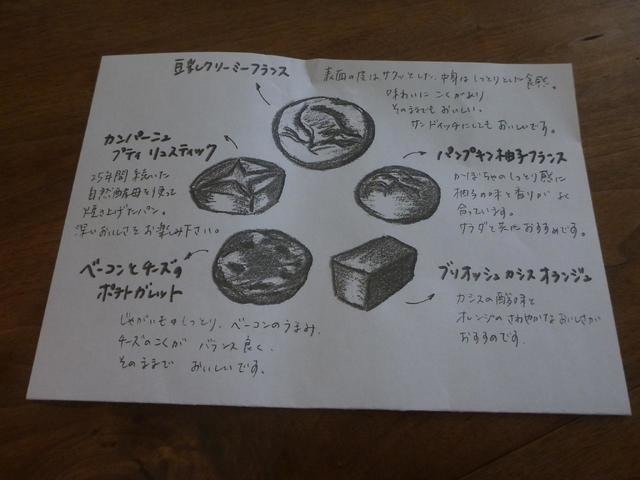 豆乳クリーミーフランス
表面の皮はサクッとした、中身はしっとりとした食感。
味わいに こくがあり
そのままでも おいしい。
サンドイッチにしても おいしいです。
カンパーニュ
プティ リュスティック
25年間 続いた
自然酵母を使って
焼き上げたパン。
深いおいしさをお楽しみ下さい。
パンプキン柚子フランス
かぼちゃのしっとり感に
柚子の味と香りが よく
合っています。
サラダと共におすすめです。
ベーコンとチーズの
ポテトガレット
じゃがいものしっとり、ベーコンのうまみ、
チーズのこくが バランス良く、
そのままで おいしいです。
ブリオッシュ カシス オランジュ
カシスの酸味と
オレンジのさわやかなおいしさが
おすすめです。